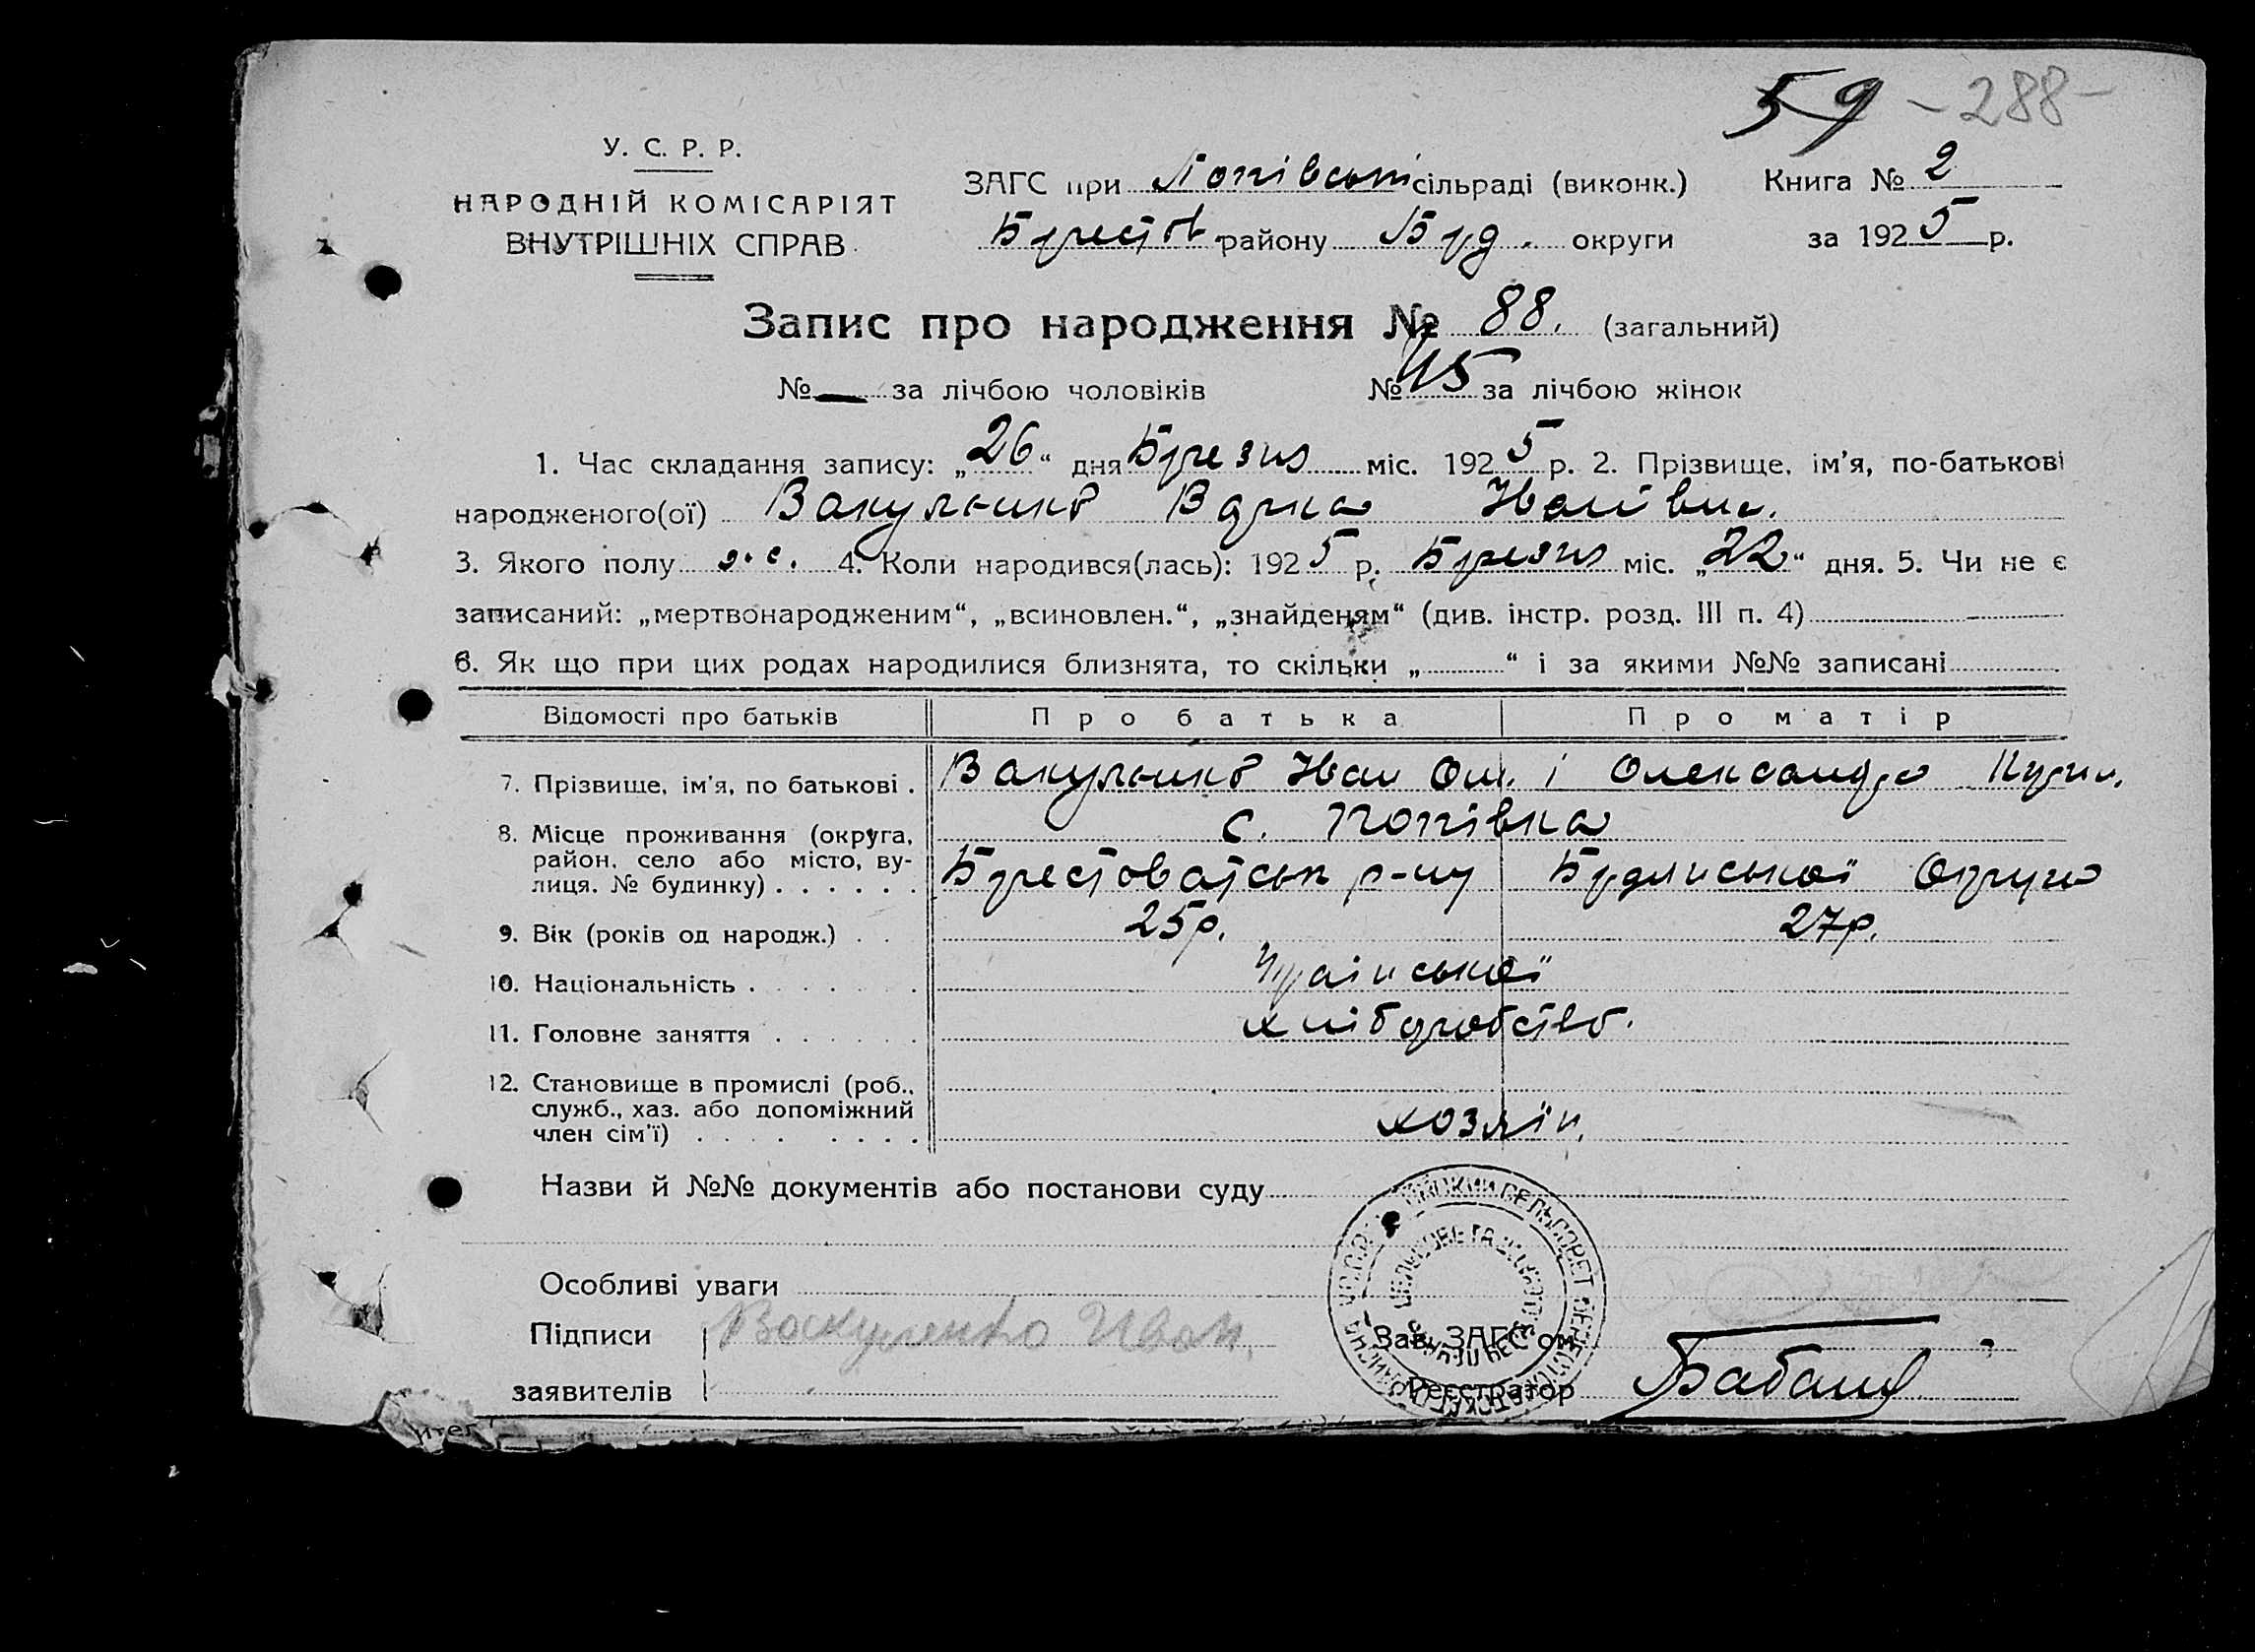 59 - 288 -
У. С. Р. Р.
НАРОДНІЙ КОМІСАРІЯТ
ВНУТРІШНІХ СПРАВ
ЗАГС при Попівській сільраді (виконк.) Книга № 2
Брестов. району Берд. округи за 1925 р.
Запис про народження № 88. (загальний)
№ — за лічбою чоловіків № 45 за лічбою жінок
1. Час складання запису: „26“ дня Брезня міс. 1925 р. 2. Прізвище, ім'я, по-батькові
народженого(ої) Вакуленко Іванівна.
3. Якого полу ж. 4. Коли народився(лась): 1925 р. Брезня міс. „22“ дня. 5. Чи не є
записаний: „мертвонародженим“, „всиновлен.“, „знайденям“ (див. інстр. розд. III п. 4)
6. Як що при цих родах народилися близнята, то скільки „ “ і за якими №№ записані
Відомості про батьків Про батька Про матір
7. Прізвище, ім'я, по батькові . Вакуленко Іван і Олександра
8. Місце проживання (округа, район, село або місто, вулиця. № будинку) . . . . . . с. Попівка
Брестоватськ р-ну округи
9. Вік (років од народж.) . . 25р. 27р.
10. Національність . . . . . . Української
11. Головне заняття . . . . . . хліборобство.
12. Становище в промислі (роб.,
служб., хаз. або допоміжний
член сім'ї) . . . . . . . . хозяїн.
Назви й №№ документів або постанови суду
Особливі уваги
Підписи Вакуленко Иван. Зав. ЗАГС'ом
заявителів Реєстратор